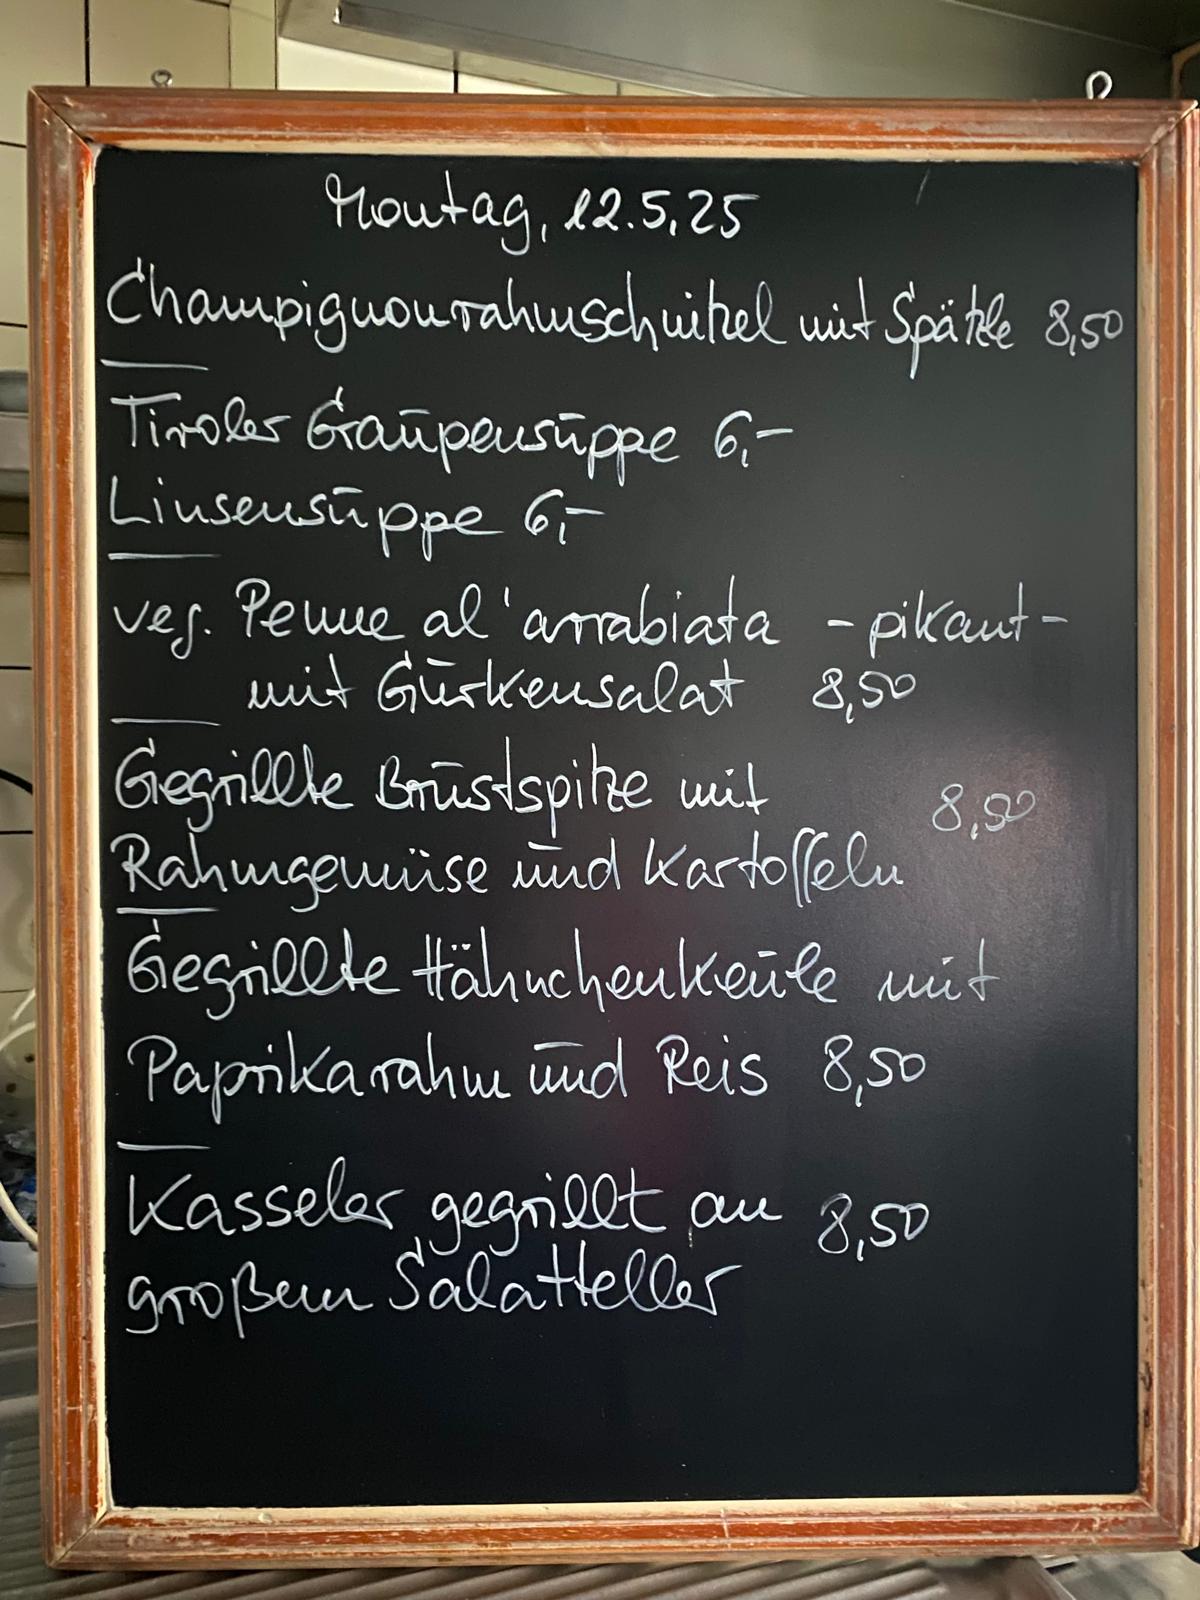 Montag, 12.5.25
Champignonrahmschnitzel mit Spätzle 8,50
Tiroler Graupensuppe 6,-
Linsensuppe 6,-
veg. Penne al'arrabiata - pikant -
mit Gurkensalat 8,50
Gegrillte Brustspitze mit 8,50
Rahmgemüse und Kartoffeln
Gegrillte Hähnchenkeule mit
Paprikarahm und Reis 8,50
Kasseler gegrillt an 8,50
großem Salatteller